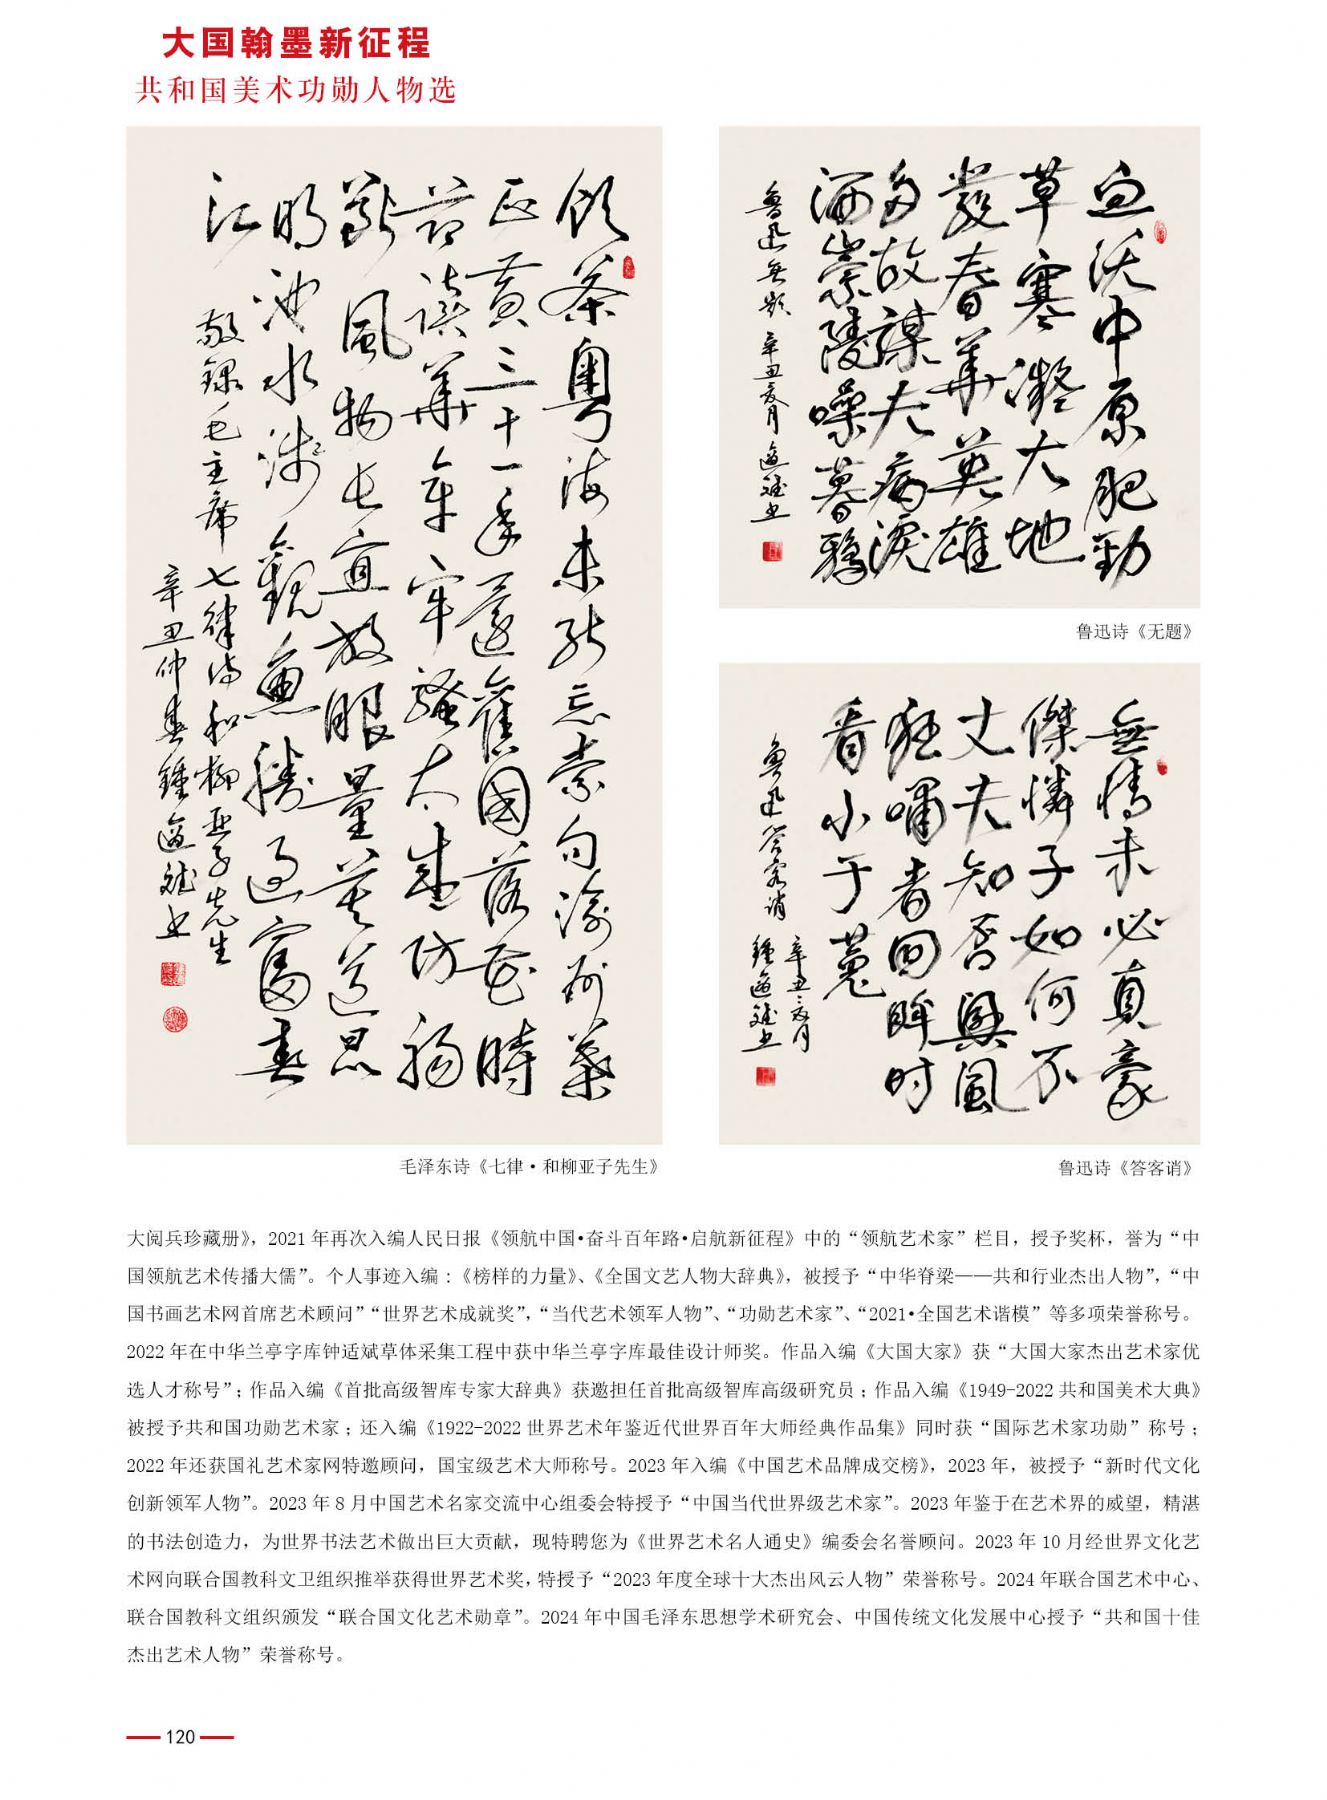 大国翰墨新征程
共和国美术功勋人物选
饮茶粤海未能忘索句渝州叶
正黄三十一年还旧国落花时
节读华章牢骚太盛防肠
断风物长宜放眼量莫道昆
明池水浅观鱼胜过富春
江
敬録毛主席七律诗和柳亚子先生
辛丑仲春鍾適斌书
毛泽东诗《七律·和柳亚子先生》
血沃中原肥勁
草寒凝大地
發春華英雄
多故謀夫病淚
洒崇陵噪暮鴉
鲁迅無题 辛丑夏月 適斌书
鲁迅诗《无题》
無情未必真豪
傑憐子如何不
丈夫知否興風
狂嘯者回眸时
看小于菟
鲁迅答客诮
辛丑夏月
鍾適斌书
鲁迅诗《答客诮》
大阅兵珍藏册》，2021 年再次入编人民日报《领航中国•奋斗百年路•启航新征程》中的“领航艺术家”栏目，授予奖杯，誉为“中
国领航艺术传播大儒”。个人事迹入编：《榜样的力量》、《全国文艺人物大辞典》，被授予“中华脊梁——共和行业杰出人物”，“中
国书画艺术网首席艺术顾问”“世界艺术成就奖”，“当代艺术领军人物”、“功勋艺术家”、“2021•全国艺术谐模”等多项荣誉称号。
2022 年在中华兰亭字库钟适斌草体采集工程中获中华兰亭字库最佳设计师奖。作品入编《大国大家》获“大国大家杰出艺术家优
选人才称号”；作品入编《首批高级智库专家大辞典》获邀担任首批高级智库高级研究员；作品入编《1949-2022 共和国美术大典》
被授予共和国功勋艺术家；还入编《1922-2022 世界艺术年鉴近代世界百年大师经典作品集》同时获“国际艺术家功勋”称号；
2022 年还获国礼艺术家网特邀顾问，国宝级艺术大师称号。2023 年入编《中国艺术品牌成交榜》，2023 年，被授予“新时代文化
创新领军人物”。2023 年 8 月中国艺术名家交流中心组委会特授予“中国当代世界级艺术家”。2023 年鉴于在艺术界的威望，精湛
的书法创造力，为世界书法艺术做出巨大贡献，现特聘您为《世界艺术名人通史》编委会名誉顾问。2023 年 10 月经世界文化艺
术网向联合国教科文卫组织推举获得世界艺术奖，特授予“2023 年度全球十大杰出风云人物”荣誉称号。2024 年联合国艺术中心、
联合国教科文组织颁发“联合国文化艺术勋章”。2024 年中国毛泽东思想学术研究会、中国传统文化发展中心授予“共和国十佳
杰出艺术人物”荣誉称号。
120